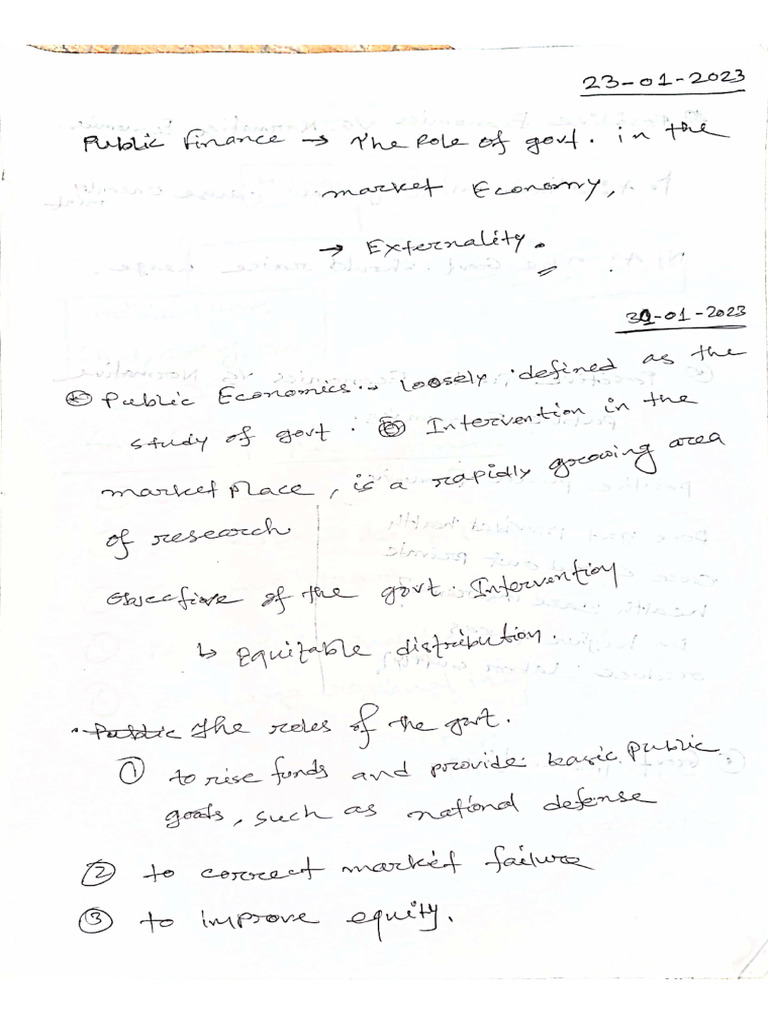 23-01-2023
Public Finance → The Role of govt. in the
market Economy,
→ Externality.
30-01-2023
Public Economics.. loosely defined as the
study of govt. Intervention in the
market place, is a rapidly growing area
of research
Objective of the govt. Intervention
↳ Equitable distribution.
• Public The roles of the govt.
① to rise funds and provide basic public
goods, such as national defense
② to correct market failure
③ to improve equity.